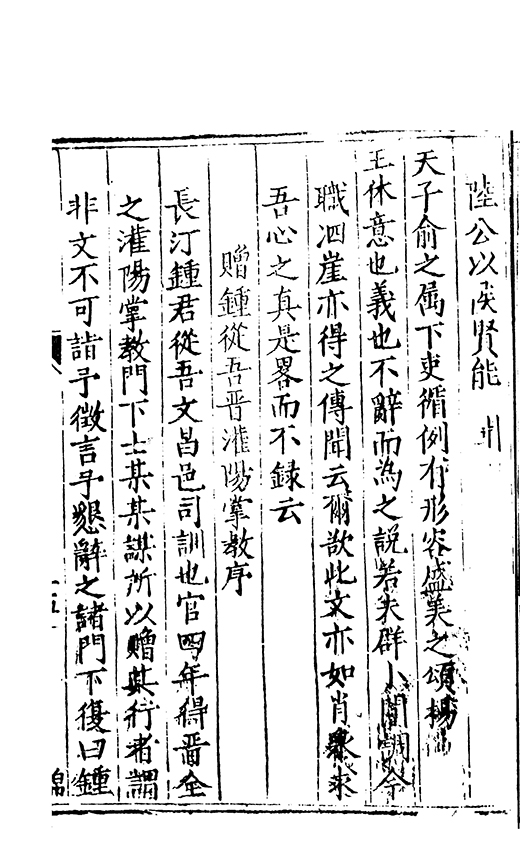 陸公以侯賢能
天子俞之屬下吏循例有形容盛美之頌楊
王休意也義也不辭而為之說若夫群小間關今
職泗崖亦得之傳聞云爾欲此文亦如肖象求
吾心之真是畧而不録云
贈鍾從吾晋灌陽掌教序
長汀鍾君從吾文昌邑司訓也官四年得晋全
之灌陽掌教門下士某某謀所以贈其行者謂
非文不可詣予徵言予懇辭之諸門下復曰鍾